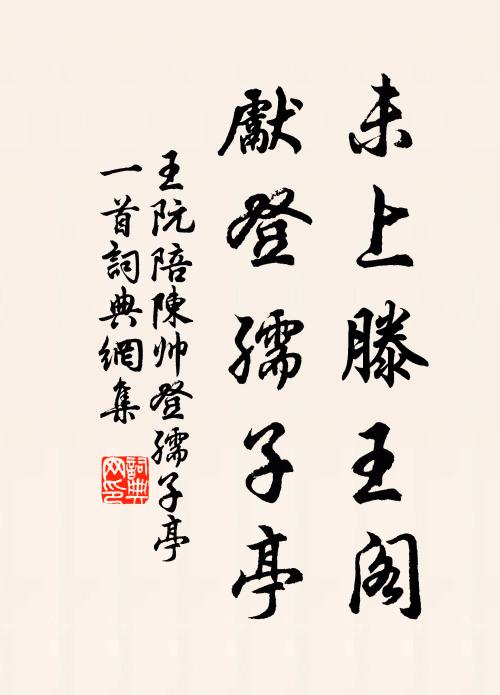 未上滕王阁
獻登孺子亭
王阮陪陳帅登孺子亭
一首詞典網集
詞典
网印